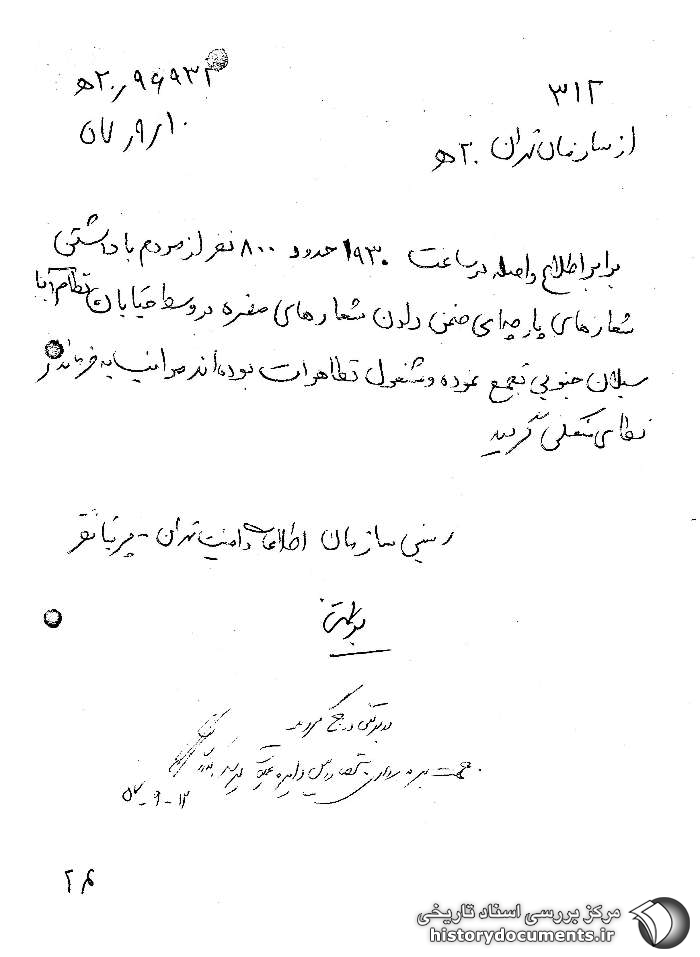 ۳۱۲
۲۰ﻫ/۹۶۹۳۲
۵۷/۹/۱۰
از سازمان تهران ۲۰ﻫ
برابر اطلاع واصله در ساعت ۱۹۳۰ حدود ۸۰۰ نفر از مردم با داشتن
شعارهای پارچه‌ای ضمن دادن شعارهای مضره در وسط خیابان نظام آباد
سبلان جنوبی تجمع نموده و مشغول تظاهرات بوده‌اند مراتب به فرماندار
نظامی منعکس گردید
رئیس سازمان اطلاعات و امنیت تهران - پرنیانفر
در بولتن درج گردید
جهت بهره برداری
۵۷-۹-۱۲
۲۴
مرکز بررسی اسناد تاریخی
historydocuments.ir